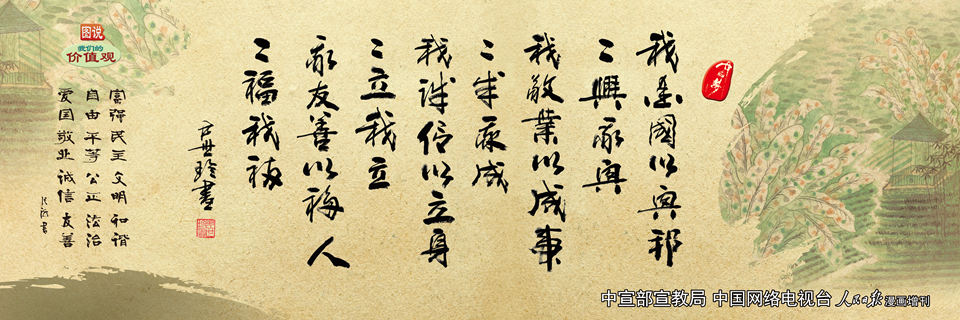 我愛國以興邦
〻興我興
我敬業以成事
〻成我成
我誠信以立身
〻立我立
我友善以福人
〻福我福
图说
我们的
价值观
富强民主 文明和谐
自由平等 公正法治
爱国敬业 诚信友善
中宣部宣教局 中国网络电视台 人民日报 漫画增刊